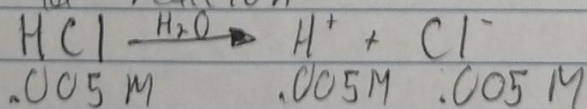 HCl H₂O → H⁺ + Cl⁻
.005 M .005M .005 M